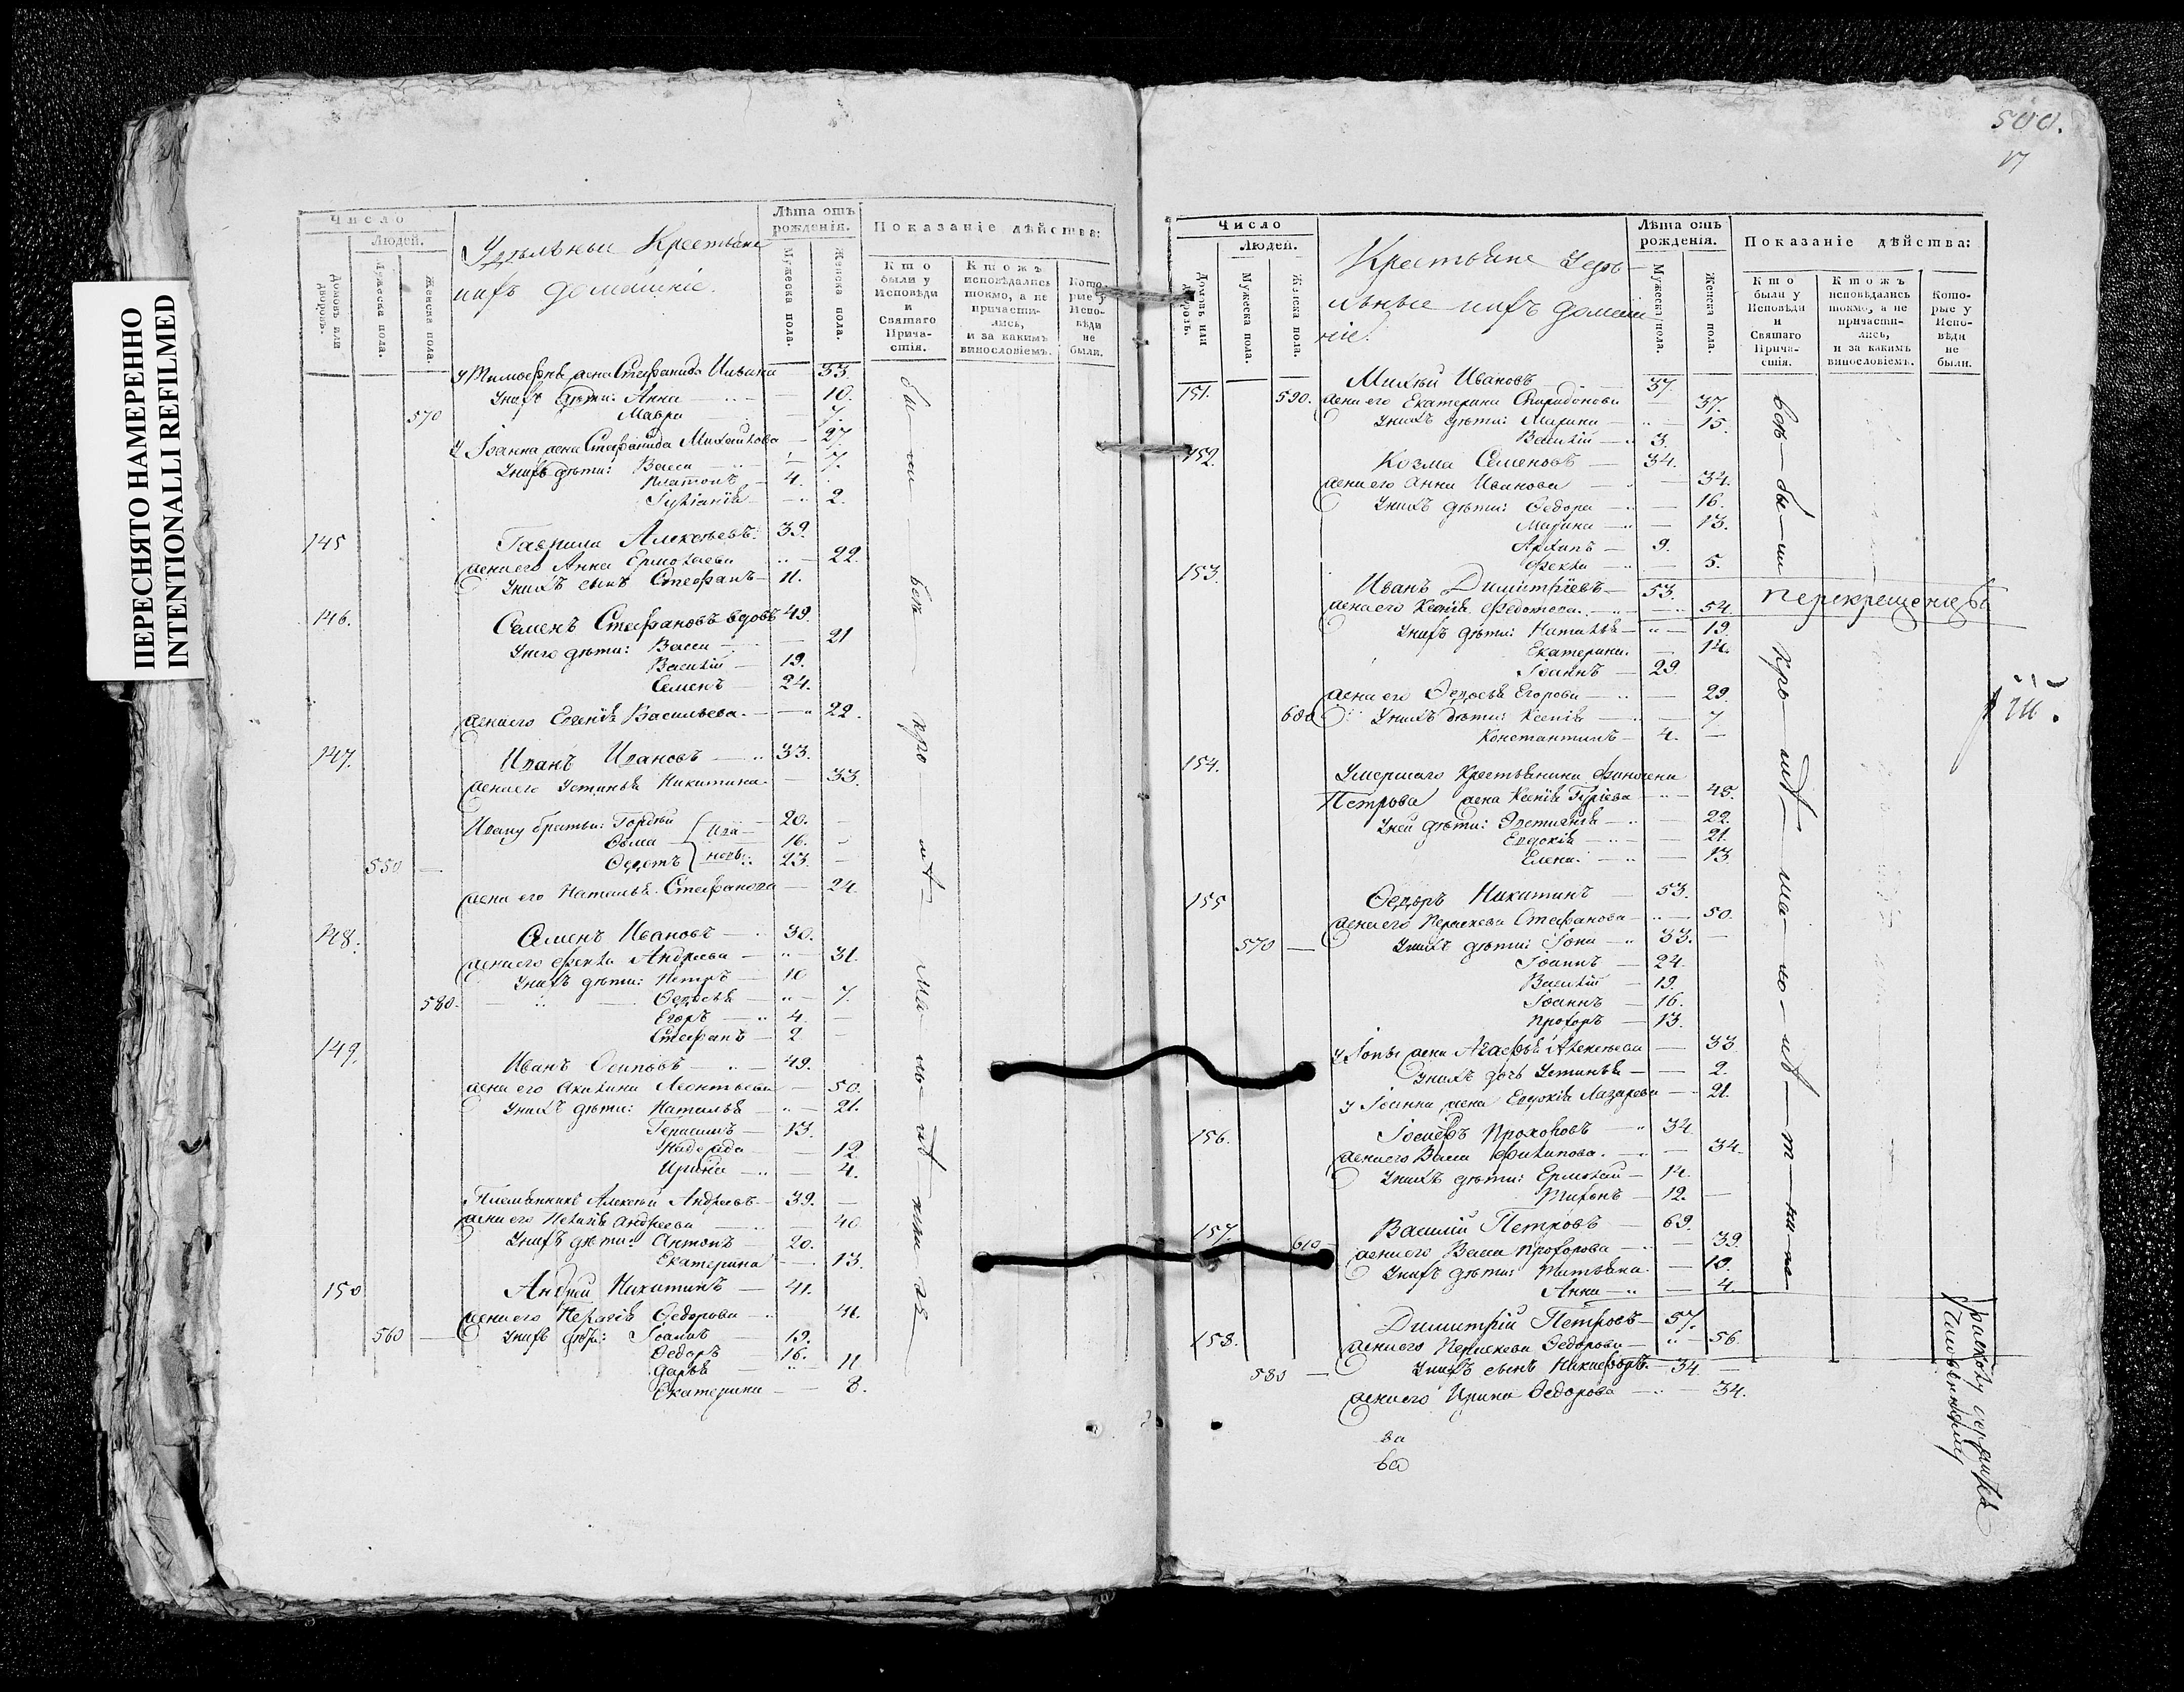 ПЕРЕСНЯТО НАМЕРЕННО
INTENTIONALLI REFILMED
Число
Людей.
Домовъ или дворовъ.
Мужеска пола.
Женска пола.
Удѣльныи Крестьяне
ихъ домашніе.
Лѣта отъ рожденія.
Мужеска пола.
Женска пола.
Показаніе дѣйства:
Кто были у Исповѣди и Святаго Прича- стія.
Ктожъ исповѣдались токмо, а не причасти- лись, и за какимъ винословіемъ.
Кото- рые у Испо- вѣди не были.
У Тимофея жена Стефанида 33.
У нихъ дѣти: Анна 10.
570 Мавра 7.
У Іоанна жена Стефанида Михайлова 27.
У нихъ дѣти: Васса 7.
Платонъ 4.
2.
145 Гаврила Алексѣевъ 39.
жена его Анна Ермолаева 22.
У нихъ сынъ Стефанъ 11.
146. Семенъ Стефановъ вдовъ 49.
У него дѣти: Васса 21
Василій 19.
Семенъ 24.
жена его Евгенія Васильева. 22.
147. Иванъ Ивановъ 33.
жена его Устинья Никитина 33
Ивану братья: Гордѣй 20.
Ѳома 16.
550 Ѳедотъ 23.
жена его Наталья Стефанова 24.
148. Семенъ Ивановъ 30.
жена его Фекла Андреева 31.
У нихъ дѣти: Петръ 10
580. Ѳедосья 7.
Егоръ 4.
Стефанъ 2
149. Иванъ Осиповъ 49.
жена его Акилина Леонтьева 50.
У нихъ дѣти: Наталья 21.
Герасимъ 13.
Надежда 12.
Ирина 4.
Племянникъ Алексѣй Андреевъ 39.
жена его Пелагія Андреева 40
У нихъ дѣти: Антонъ 20.
Екатерина 13.
150 Андрей Никитинъ 41.
жена его Ѳедорова 41.
560 У нихъ дѣти: Іоаннъ 19.
Ѳедоръ 16.
Дарья 11
Екатерина 8.
500.
17
Число
Людей.
Домовъ или дворовъ.
Мужеска пола.
Женска пола.
Крестьяне Удѣ-
льные ихъ домаш
ніе.
Лѣта отъ рожденія.
Мужеска пола.
Женска пола.
Показаніе дѣйства:
Кто были у Исповѣди и Святаго Прича- стія.
Ктожъ исповѣдались токмо, а не причасти- лись, и за какимъ винословіемъ.
Кото- рые у Испо- вѣди не были.
151. Михѣй Ивановъ 37
590. жена его Екатерина Спиридонова 37.
У нихъ дѣти: Марина 15.
Василій 3.
152. Козма Семеновъ 34.
жена его Анна Иванова 34.
У нихъ дѣти: Ѳедора 16.
Марина 13.
Архипъ 9.
Фекла 5.
153. Иванъ Димитріевъ 53.
жена его Ксенія Федотова 54. перекрещенцы
У нихъ дѣти: Наталья 19.
Екатерина 14.
Іоаннъ 29
жена его Ѳедосья Егорова 29.
600 У нихъ дѣти: Ксенія 7
Константинъ 4.
154. Умершаго Крестьянина
Петрова жена Ксенія Гуріева 45.
У ней дѣти: 22.
Евдокія 21.
Елена 13.
155 Ѳедоръ Никитинъ 53.
жена его Параскева Стефанова 50.
570 У нихъ дѣти: Іона 33.
Іоаннъ 24.
Василій 19.
Іоаннъ 16.
Прохоръ 13.
У Іоны жена Агафья Алексѣева 33
У нихъ дочь Устинья 2.
У Іоанна жена Евдокія Лазарева 21.
156. Іосифъ Прохоровъ 34
жена его Васса Филипова. 34.
У нихъ дѣти: Ермолай 14.
Тихонъ 12.
157. Василій Петровъ 69.
610 жена его Васса Прохорова 39.
У нихъ дѣти: Татьяна 10.
Анна 4.
158. Димитрій Петровъ 57.
жена его Параскева Ѳедорова 56
580 У нихъ сынъ Никифоръ 34
жена его Ирина Ѳедорова 34.